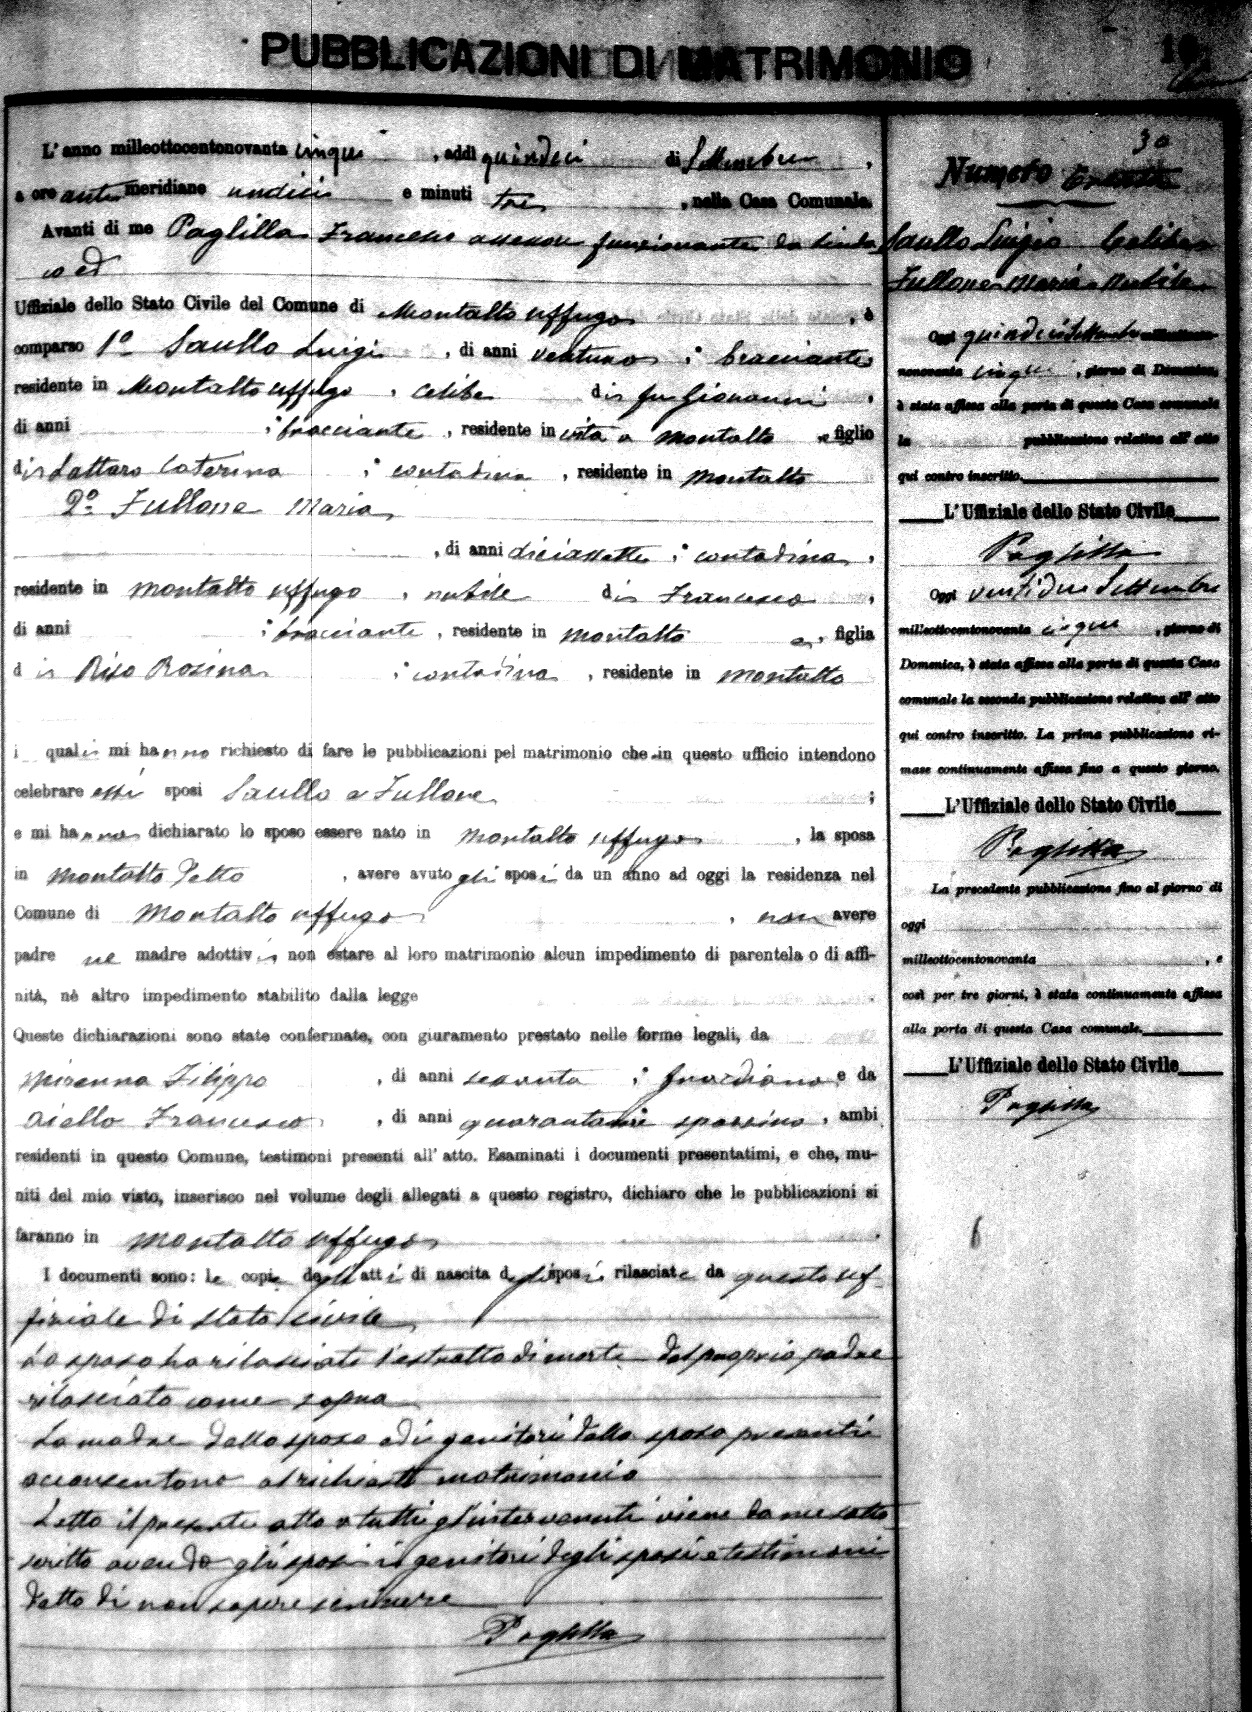 PUBBLICAZIONI DI MATRIMONIO
L' anno milleottocentonovanta cinque, addì quindici di Settembre,
a ore anti meridiane undici e minuti tre, nella Casa Comunale.
Avanti di me Paglilla Francesco assessore funzionante da sinda
co ed
Uffiziale dello Stato Civile del Comune di Montalto Uffugo, è
comparso 1º Saullo Luigi, di anni ventuno; bracciante
residente in Montalto Uffugo, celibe di fu Giovanni,
di anni ; bracciante, residente in vita a Montalto e figlio
di Lattaro Caterina ; contadina, residente in Montalto
2º Fullone Maria
, di anni diciassette; contadina,
residente in Montalto Uffugo, nubile di Francesco,
di anni ; bracciante, residente in Montalto e, figlia
di Riso Rosina ; contadina, residente in Montalto
i quali mi hanno richiesto di fare le pubblicazioni pel matrimonio che in questo ufficio intendono
celebrare essi sposi Saullo e Fullone ;
e mi hanno dichiarato lo sposo essere nato in Montalto Uffugo, la sposa
in Montalto, avere avuto gli sposi da un anno ad oggi la residenza nel
Comune di Montalto Uffugo, non avere
padre ne madre adottivi non ostare al loro matrimonio alcun impedimento di parentela o di affi-
nità, nè altro impedimento stabilito dalla legge
Queste dichiarazioni sono state confermate, con giuramento prestato nelle forme legali, da
Mirenna Filippo, di anni sessanta; guardiano e da
Aiello Francesco, di anni spazzino, ambi
residenti in questo Comune, testimoni presenti all' atto. Esaminati i documenti presentatimi, e che, mu-
niti del mio visto, inserisco nel volume degli allegati a questo registro, dichiaro che le pubblicazioni si
faranno in Montalto Uffugo.
I documenti sono: le copie degli atti di nascita degli sposi, rilasciate da questo uf
fiziale di stato civile
Lo sposo ha rilasciato l'estratto di morte del proprio padre
rilasciato come sopra
La madre dello sposo ed i genitori della sposa presenti
acconsentono al richiesto matrimonio
Letto il presente atto a tutti gl'intervenuti viene da me sotto
scritto avendo gli sposi i genitori degli sposi e testimoni
detto di non sapere scrivere
Paglilla
30
Numero Trenta
Saullo Luigi Celibe
Fullone Maria Nubile
Oggi quindici Settembre milleottocento-
nonovanta cinque, giorno di Domenica,
è stata affissa alla porta di questa Casa comunale
la pubblicazione relativa all' atto
qui contro inscritto.
L' Uffiziale dello Stato Civile
Paglilla
Oggi ventidue Settembre
milleottocentonovanta cinque, giorno di
Domenica, è stata affissa alla porta di questa Casa
comunale la seconda pubblicazione relativa all' atto
qui contro inscritto. La prima pubblicazione ri-
mase continuamente affissa fino a questo giorno.
L' Uffiziale dello Stato Civile
Paglilla
La precedente pubblicazione fino al giorno di
oggi
milleottocentonovanta , e
così per tre giorni, è stata continuamente affissa
alla porta di questa Casa comunale.
L' Uffiziale dello Stato Civile
Paglilla
6